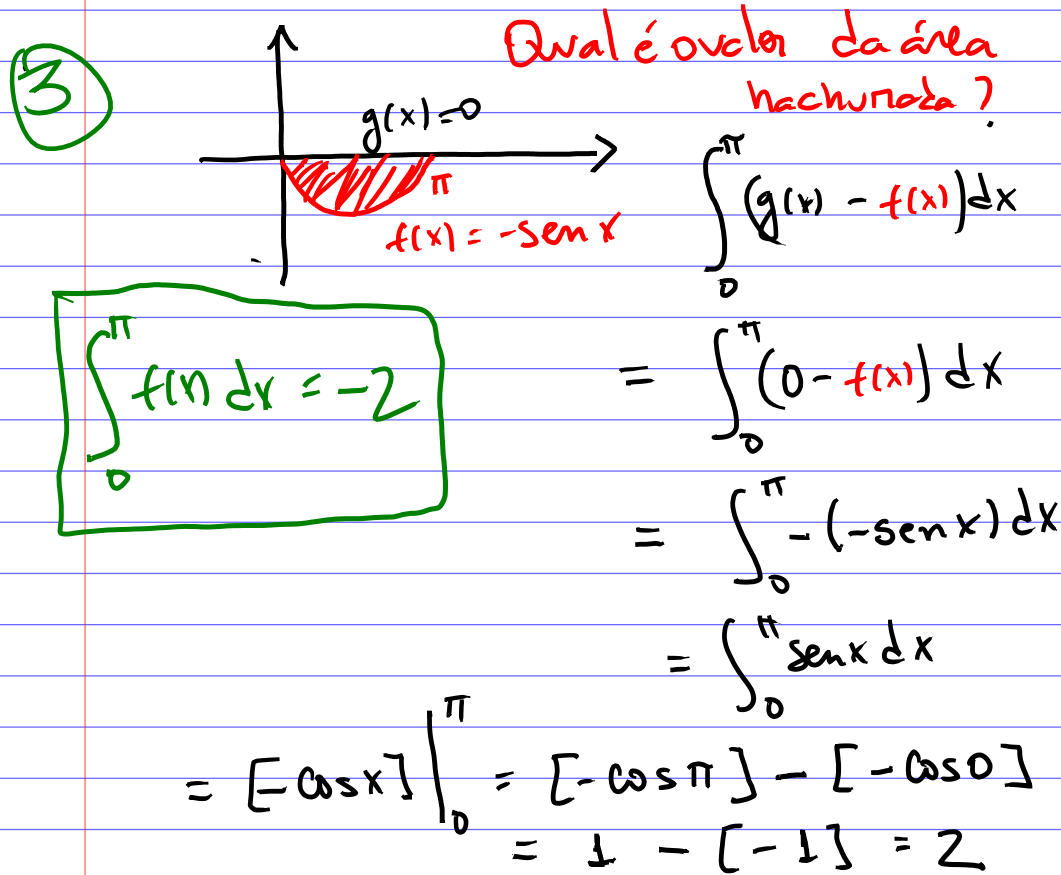 3
Qual é o valor da área
hachurada?
g(x)=0
π
f(x) = -sen x
∫₀^π (g(x) - f(x)) dx
∫₀^π f(x) dx = -2
= ∫₀^π (0 - f(x)) dx
= ∫₀^π -(-sen x) dx
= ∫₀^π sen x dx
= [-cos x] |₀^π = [-cos π] - [-cos 0]
= 1 - [-1] = 2